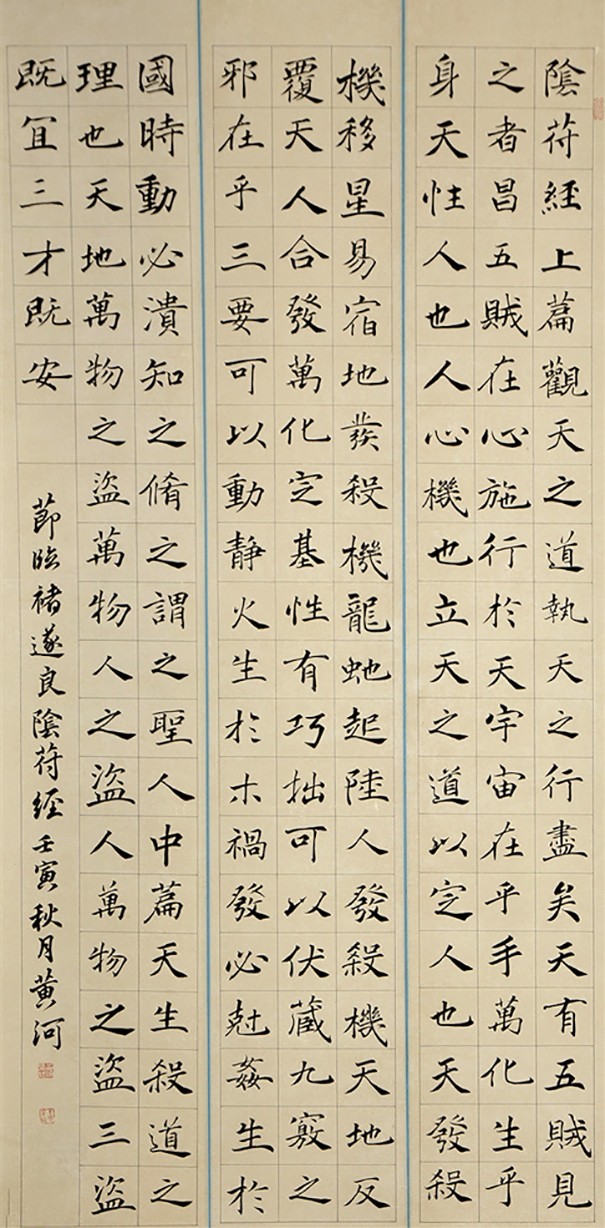 陰符經上篇觀天之道執天之行盡矣天有五賊見
之者昌五賊在心施行於天宇宙在乎手萬化生乎
身天性人也人心機也立天之道以定人也天發殺
機移星易宿地發殺機龍虵起陸人發殺機天地反
覆天人合發萬化定基性有巧拙可以伏藏九竅之
邪在乎三要可以動靜火生於木禍發必尅姦生於
國時動必潰知之脩之謂之聖人中篇天生殺道之
理也天地萬物之盜萬物人之盜人萬物之盜三盜
既宜三才既安
節臨褚遂良陰符經壬寅秋月黄河